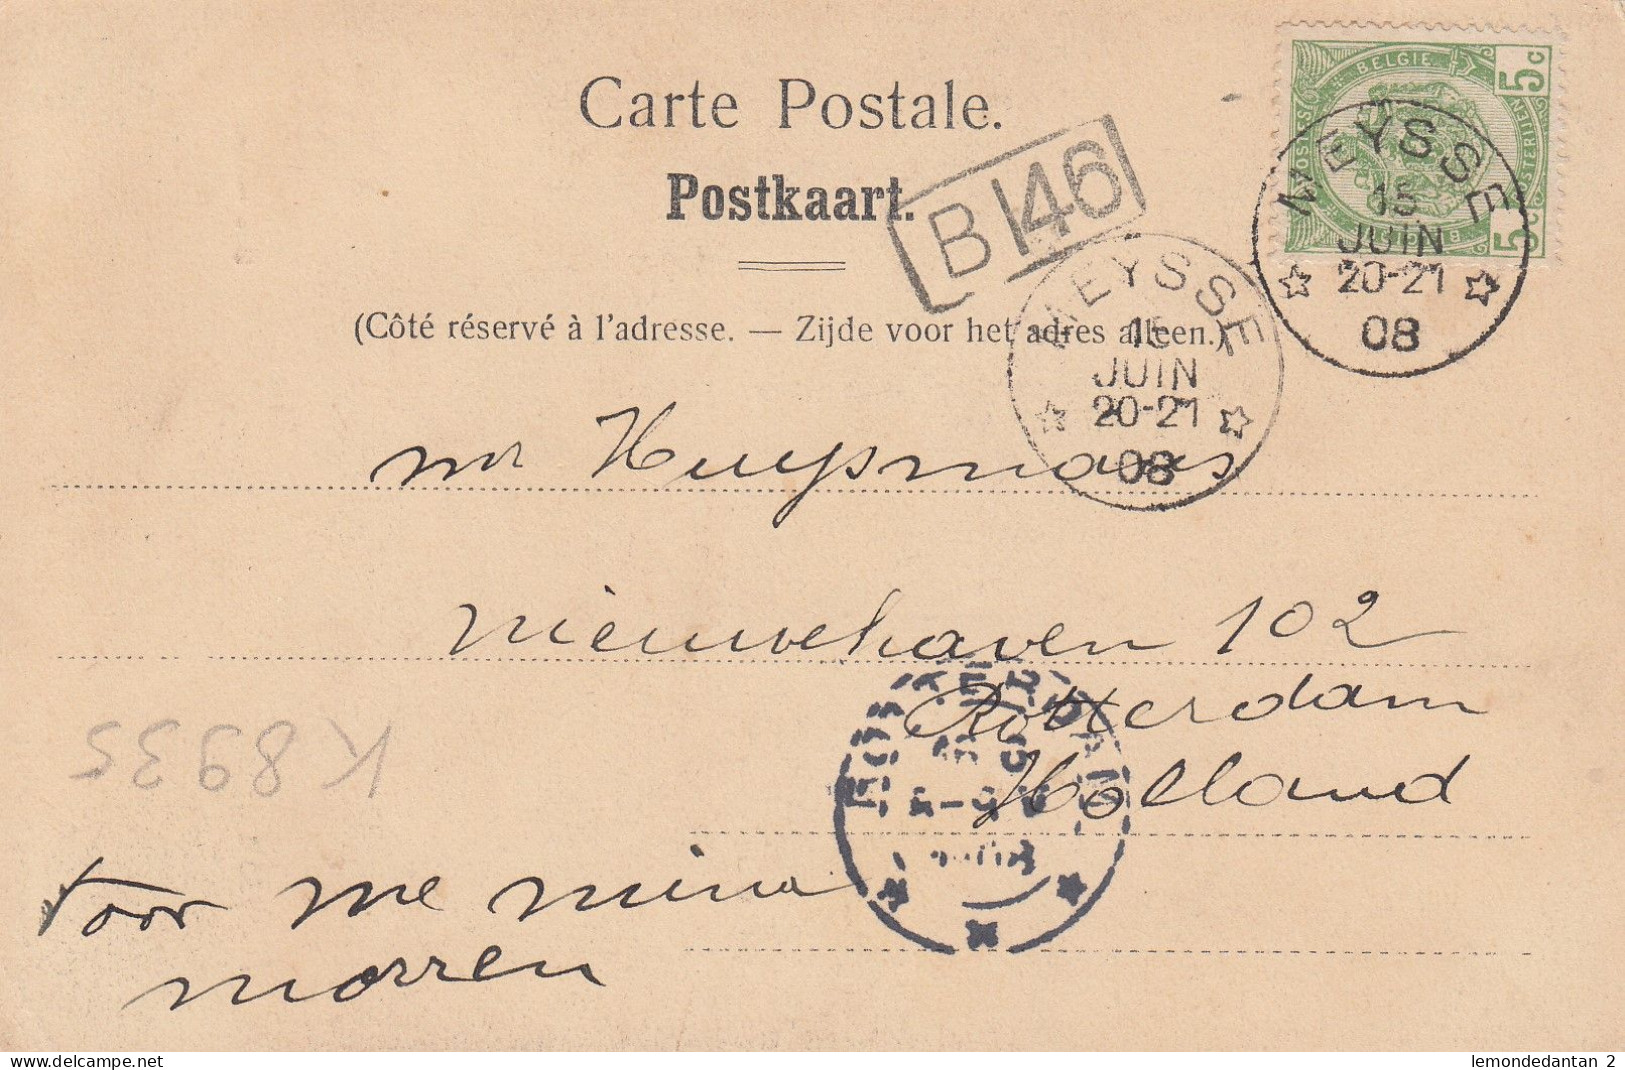 Carte Postale.
Postkaart.
B 146
BELGIE
POSTES
POSTERIJEN
5c
5c
MEYSSE
15
JUIN
20-21
08
(Côté réservé à l'adresse. — Zijde voor het adres alleen.)
MEYSSE
15
JUIN
20-21
08
mr Huysmans
Nieuwehaven 102
Rotterdam
Holland
K8935
voor me mina
morren
delcampe.net
lemondedantan 2